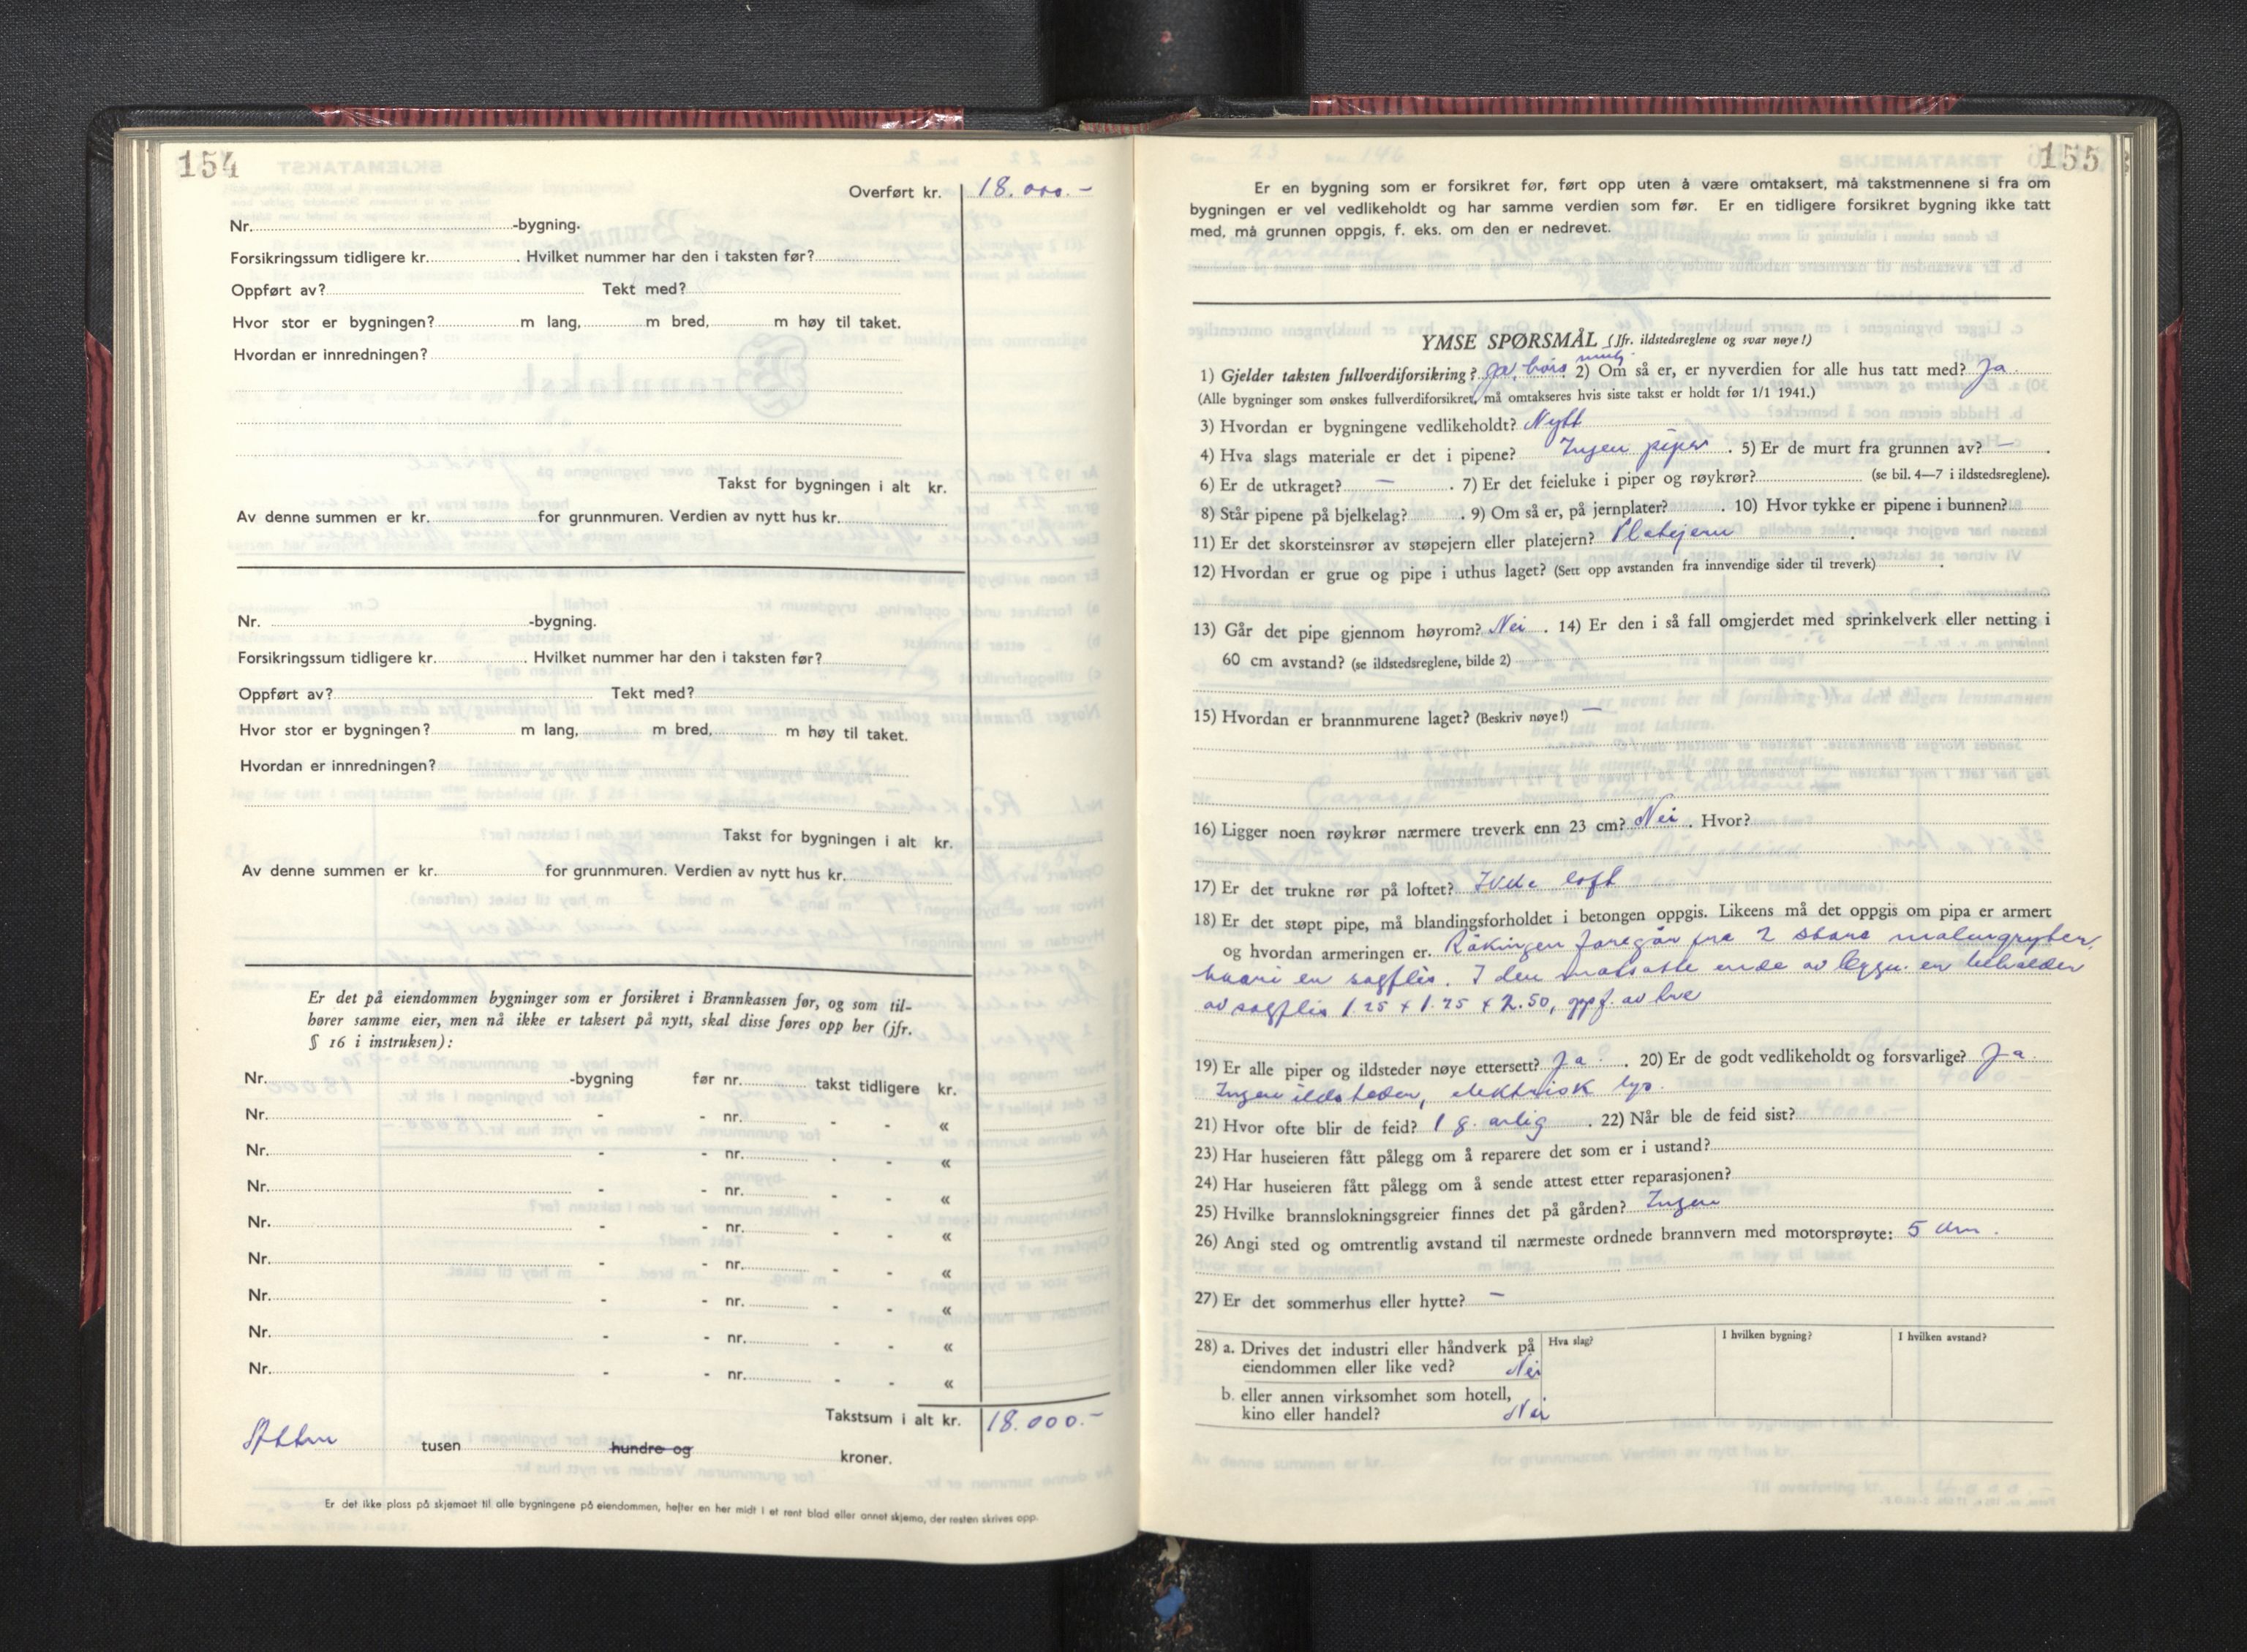 154
Overført kr. 18.000.-
Nr. -bygning.
Forsikringssum tidligere kr. . Hvilket nummer har den i taksten før?
Oppført av? Tekt med?
Hvor stor er bygningen? m lang, m bred, m høy til taket.
Hvordan er innredningen?
Takst for bygningen i alt kr.
Av denne summen er kr. for grunnmuren. Verdien av nytt hus kr.
Nr. -bygning.
Forsikringssum tidligere kr. . Hvilket nummer har den i taksten før?
Oppført av? Tekt med?
Hvor stor er bygningen? m lang, m bred, m høy til taket.
Hvordan er innredningen?
Takst for bygningen i alt kr.
Av denne summen er kr. for grunnmuren. Verdien av nytt hus kr.
Er det på eiendommen bygninger som er forsikret i Brannkassen før, og som til-
hører samme eier, men nå ikke er taksert på nytt, skal disse føres opp her (jfr.
§ 16 i instruksen):
Nr. -bygning før nr. takst tidligere kr.
Nr. - - nr. - - «
Nr. - - nr. - - «
Nr. - - nr. - - «
Nr. - - nr. - - «
Nr. - - nr. - - «
Nr. - - nr. - - «
Nr. - - nr. - - «
Nr. - - nr. - - «
Takstsum i alt kr. 18.000.-
Atten tusen hundre og kroner.
Er det ikke plass på skjemaet til alle bygningene på eiendommen, hefter en her midt i et rent blad eller annet skjema, der resten skrives opp.
155
Er en bygning som er forsikret før, ført opp uten å være omtaksert, må takstmennene si fra om
bygningen er vel vedlikeholdt og har samme verdien som før. Er en tidligere forsikret bygning ikke tatt
med, må grunnen oppgis, f. eks. om den er nedrevet.
YMSE SPØRSMÅL (Jfr. ildstedsreglene og svar nøye!)
1) Gjelder taksten fullverdiforsikring? 2) Om så er, er nyverdien for alle hus tatt med? Ja
(Alle bygninger som ønskes fullverdiforsikret, må omtakseres hvis siste takst er holdt før 1/1 1941.)
3) Hvordan er bygningene vedlikeholdt? Nytt
4) Hva slags materiale er det i pipene? Ingen piper . 5) Er de murt fra grunnen av? - .
6) Er de utkraget? - . 7) Er det feieluke i piper og røykrør? (se bil. 4—7 i ildstedsreglene).
8) Står pipene på bjelkelag? . 9) Om så er, på jernplater? . 10) Hvor tykke er pipene i bunnen?
11) Er det skorsteinsrør av støpejern eller platejern? Platejern .
12) Hvordan er grue og pipe i uthus laget? (Sett opp avstanden fra innvendige sider til treverk) .
13) Går det pipe gjennom høyrom? Nei . 14) Er den i så fall omgjerdet med sprinkelverk eller netting i
60 cm avstand? (se ildstedsreglene, bilde 2)
15) Hvordan er brannmurene laget? (Beskriv nøye!) -
16) Ligger noen røykrør nærmere treverk enn 23 cm? Nei . Hvor?
17) Er det trukne rør på loftet? Ikke loft
18) Er det støpt pipe, må blandingsforholdet i betongen oppgis. Likeens må det oppgis om pipa er armert
og hvordan armeringen er. Røkingen foregår fra 2 store gryter,
hvori en sagflis. I den motsatte ende av bygn. en beholder
av sagflis 1.25 x 1.25 x 2.50, oppf. av tre
19) Er alle piper og ildsteder nøye ettersett? Ja . 20) Er de godt vedlikeholdt og forsvarlige? Ja
Ingen ildsteder, elektrisk lys.
21) Hvor ofte blir de feid? 1 g. årlig . 22) Når ble de feid sist?
23) Har huseieren fått pålegg om å reparere det som er i ustand?
24) Har huseieren fått pålegg om å sende attest etter reparasjonen?
25) Hvilke brannslokningsgreier finnes det på gården? Ingen
26) Angi sted og omtrentlig avstand til nærmeste ordnede brannvern med motorsprøyte: 5 km .
27) Er det sommerhus eller hytte? -
28) a. Drives det industri eller håndverk på Hva slag? I hvilken bygning? I hvilken avstand?
eiendommen eller like ved? Nei
b. eller annen virksomhet som hotell,
kino eller handel? Nei